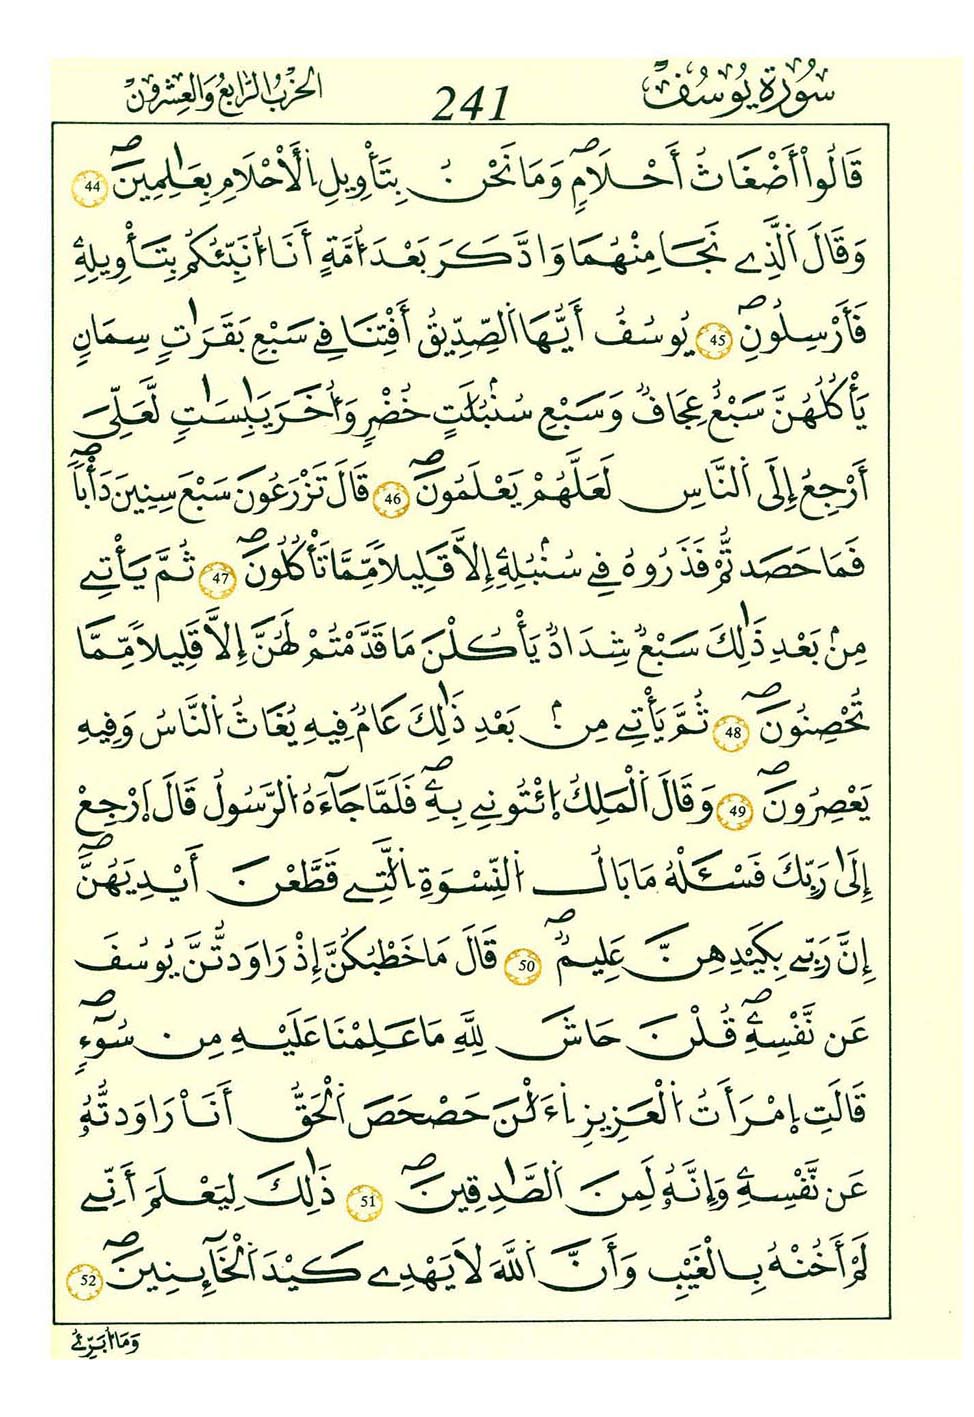 سُورَةُ يُوسُفَ 241 الحِزْبُ الرَّابِعُ وَالْعِشْرُونَ
قَالُوٓاْ أَضْغَاثُ أَحْلَامٖۖ وَمَا نَحْنُ بِتَأْوِيلِ اِ۬لْأَحْلَامِ بِعَٰلِمِينَۖ 44
وَقَالَ اَ۬لذِے نَجَا مِنْهُمَا وَادَّكَرَ بَعْدَ أُمَّةٍ اَنَا أُنَبِّئُكُم بِتَأْوِيلِهِۦ
فَأَرْسِلُونِۖ 45 يُوسُفُ أَيُّهَا اَ۬لصِّدِّيقُ أَفْتِنَا فِے سَبْعِ بَقَرَٰتٖ سِمَانٖ
يَأْكُلُهُنَّ سَبْعٌ عِجَافٞ وَسَبْعِ سُنۢبُلَٰتٍ خُضْرٖ وَأُخَرَ يَابِسَٰتٖ لَّعَلِّيَ
أَرْجِعُ إِلَى اَ۬لنَّاسِ لَعَلَّهُمْ يَعْلَمُونَۖ 46 قَالَ تَزْرَعُونَ سَبْعَ سِنِينَ دَأْباٗۖ
فَمَا حَصَدتُّمْ فَذَرُوهُ فِے سُنۢبُلِهِۦ إِلَّا قَلِيلاٗ مِّمَّا تَأْكُلُونَۖ 47 ثُمَّ يَأْتِے
مِنۢ بَعْدِ ذَٰلِكَ سَبْعٞ شِدَادٞ يَأْكُلْنَ مَا قَدَّمْتُمْ لَهُنَّ إِلَّا قَلِيلاٗ مِّمَّا
تُحْصِنُونَۖ 48 ثُمَّ يَأْتِے مِنۢ بَعْدِ ذَٰلِكَ عَامٞ فِيهِ يُغَاثُ اُ۬لنَّاسُ وَفِيهِ
يَعْصِرُونَۖ 49 وَقَالَ اَ۬لْمَلِكُ اُ۪ئْتُونِے بِهِۦۖ فَلَمَّا جَآءَهُ اُ۬لرَّسُولُ قَالَ اَ۪رْجِعْ
إِلَىٰ رَبِّكَ فَسْـَٔلْهُ مَا بَالُ اُ۬لنِّسْوَةِ اِ۬لتِے قَطَّعْنَ أَيْدِيَهُنَّۖ
إِنَّ رَبِّے بِكَيْدِهِنَّ عَلِيمٞۖ 50 قَالَ مَا خَطْبُكُنَّ إِذْ رَاوَدتُّنَّ يُوسُفَ
عَن نَّفْسِهِۦۖ قُلْنَ حَاشَ لِلهِ مَا عَلِمْنَا عَلَيْهِ مِن سُوٓءٖۖ
قَالَتِ اِ۪مْرَأَتُ اُ۬لْعَزِيزِ اِ۬ءَلَٰنَ حَصْحَصَ اَ۬لْحَقُّ أَنَا رَاوَدتُّهُۥ
عَن نَّفْسِهِۦ وَإِنَّهُۥ لَمِنَ اَ۬لصَّٰدِقِينَۖ 51 ذَٰلِكَ لِيَعْلَمَ أَنِّے
لَمْ أَخُنْهُ بِالْغَيْبِ وَأَنَّ اَ۬للَّهَ لَا يَهْدِے كَيْدَ اَ۬لْخَآئِنِينَۖ 52
وَمَا أُبَرِّئُ